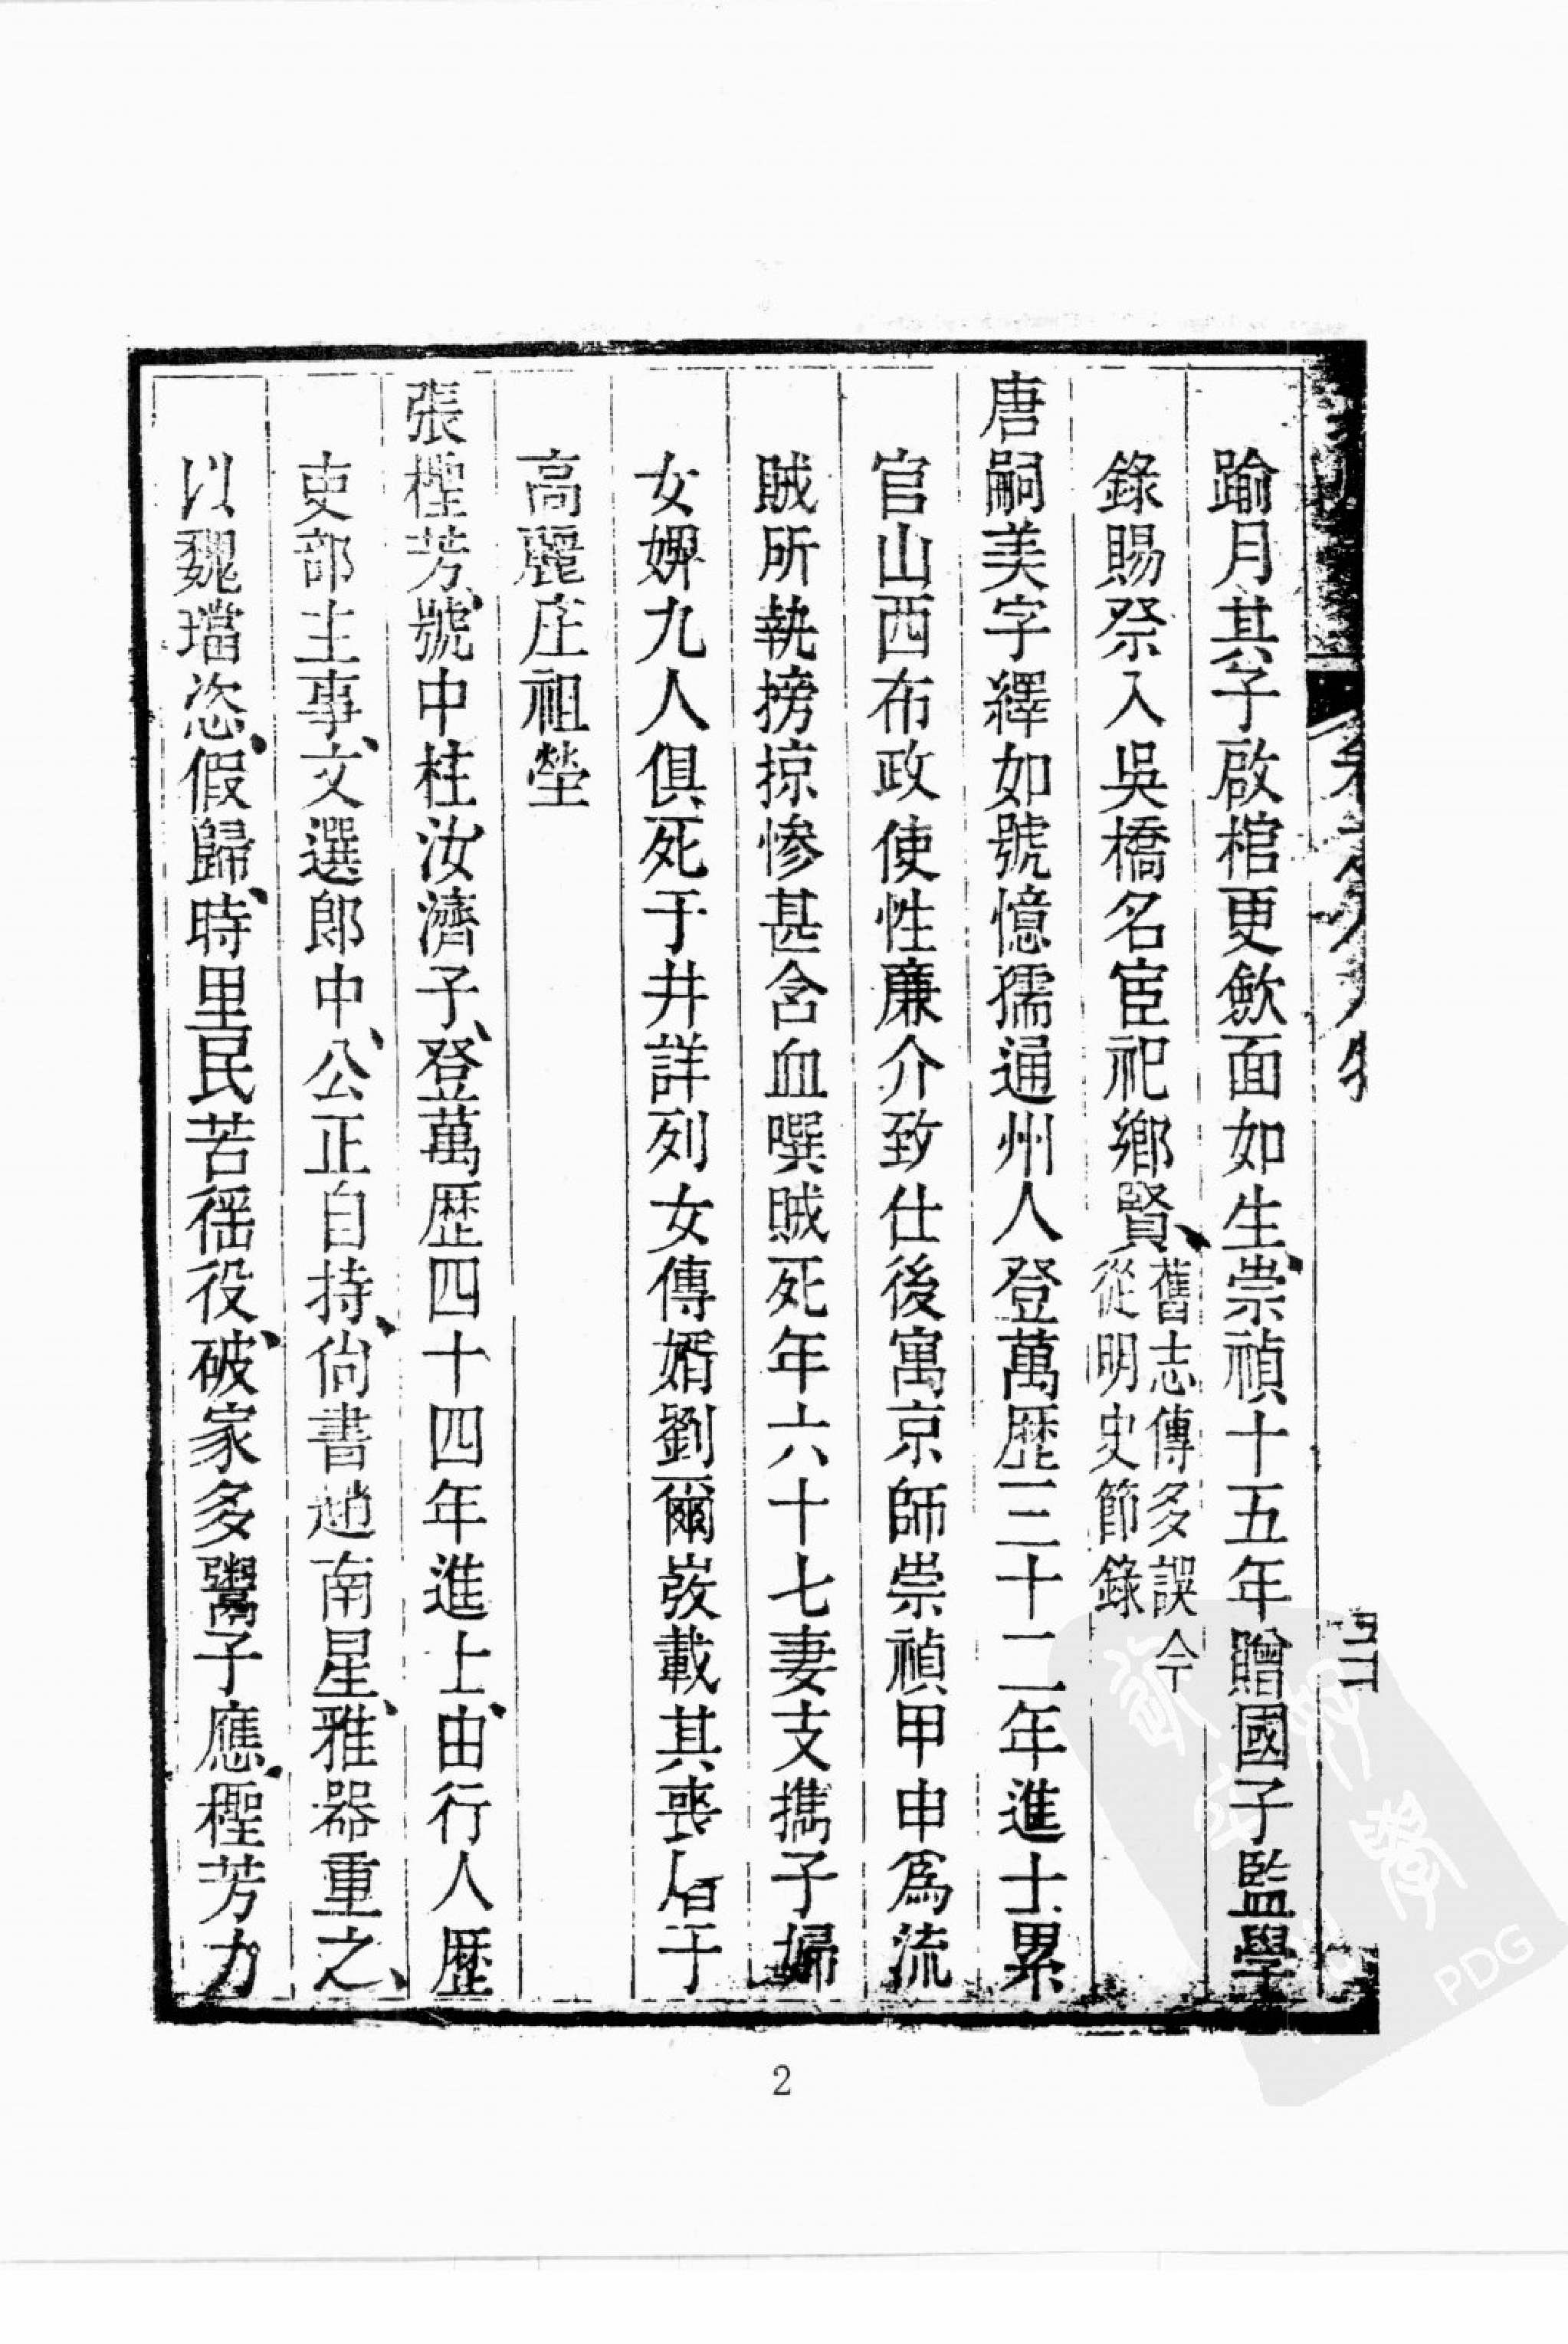 踰月其子啟棺更歛面如生崇禎十五年贈國子監學
錄賜祭入吳橋名宦祀鄉賢舊志傳多誤今從明史節錄
唐嗣美字繹如號憶孺通州人登萬歷三十二年進士累
官山西布政使性廉介致仕後寓京師崇禎甲申爲流
賊所執搒掠慘甚含血噀賊死年六十七妻支攜子婦
女婢九人俱死于井詳列女傳婿劉爾㪟載其喪歸于
高麗庄祖塋
張檉芳號中柱汝濟子登萬歷四十四年進士由行人歷
吏部主事文選郎中公正自持尙書趙南星雅器重之
以魏璫恣假歸時里民苦徭役破家多鬻子應檉芳力
2
PDG